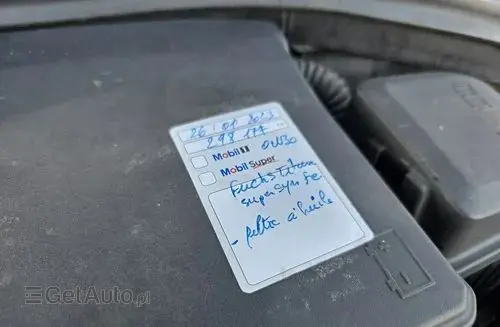 26 01 2023
298 177
Mobil 1 0W30
Mobil Super
Fuchs Titan
supersyn Fe
- filtre à huile
GetAuto.pl